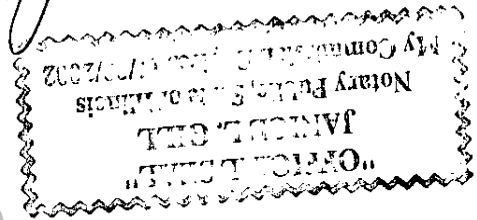 "OFFICIAL SEAL"
JANICE L. GILL
Notary Public, State of Illinois
My Commission Expires /2002